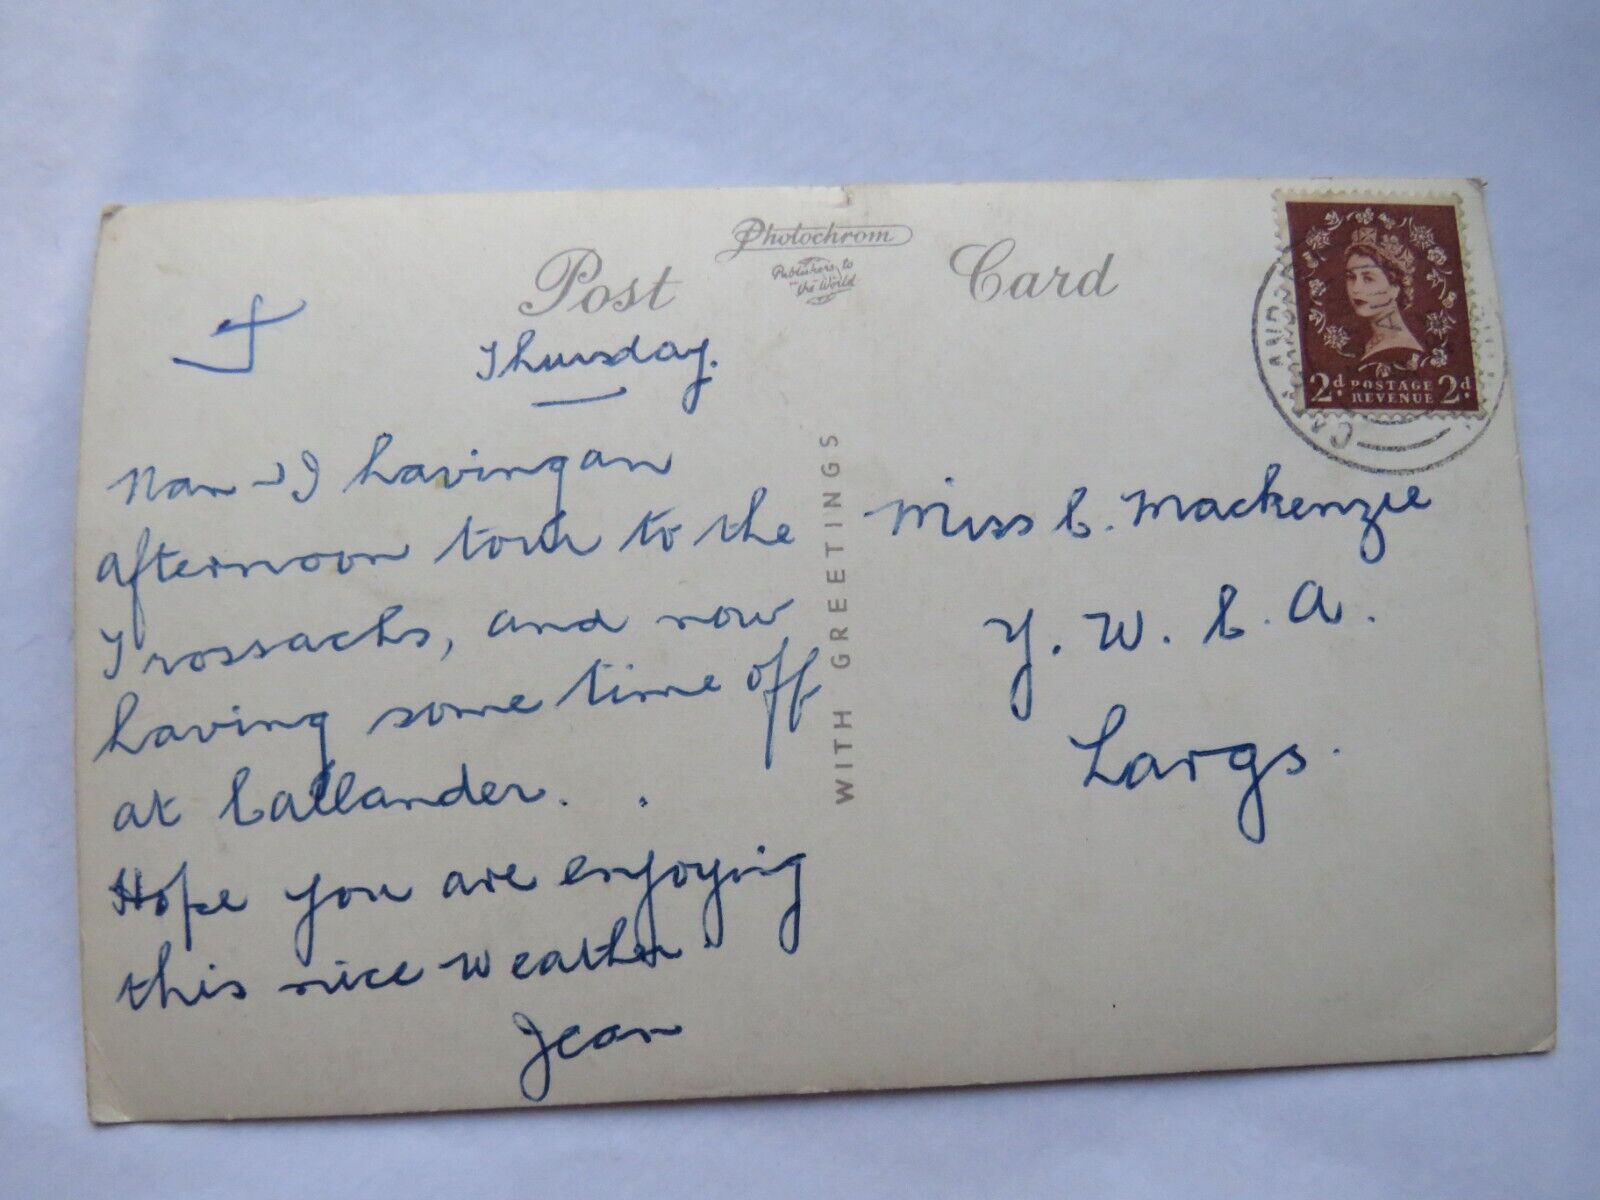 Post Card
Photochrom
Publishers to
the World
Thursday.
Nan & I having an
afternoon tour to the
Trossachs, and now
having some time off
at Callander. .
Hope you are enjoying
this nice weather.
Jean
WITH GREETINGS
Miss C. Mackenzie
Y. W. C. A.
Largs.
2d POSTAGE 2d
REVENUE